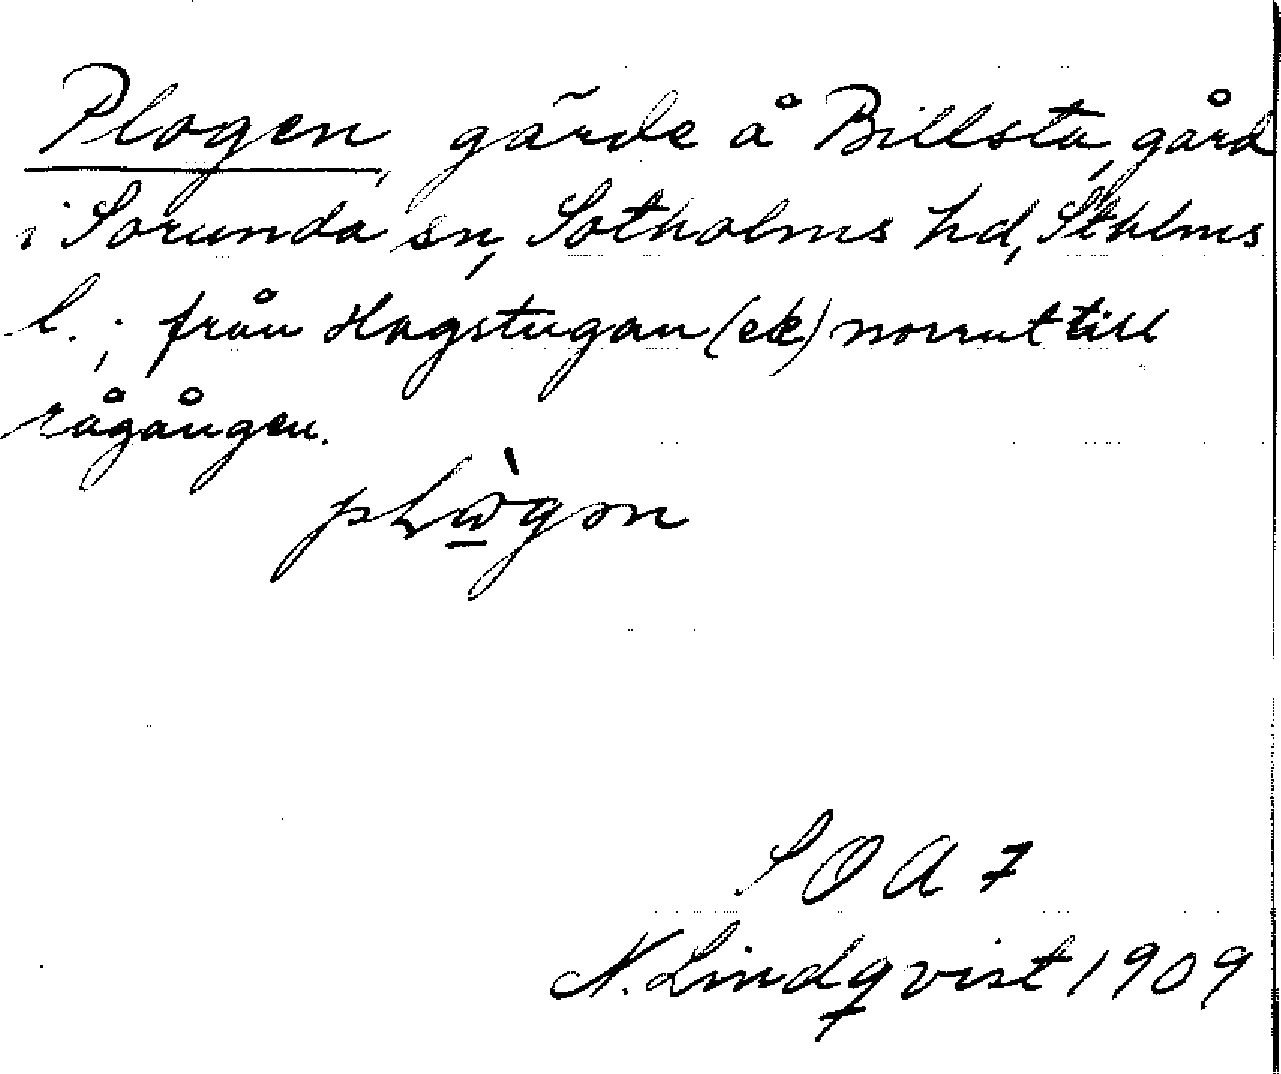 Plogen, gärde å Billsta, gård
i Sorunda sn, Sotholms hd, Sthlms
l.; från Hagstugan (ek) norrut till
rågången.
SOA 7
N. Lindqvist 1909